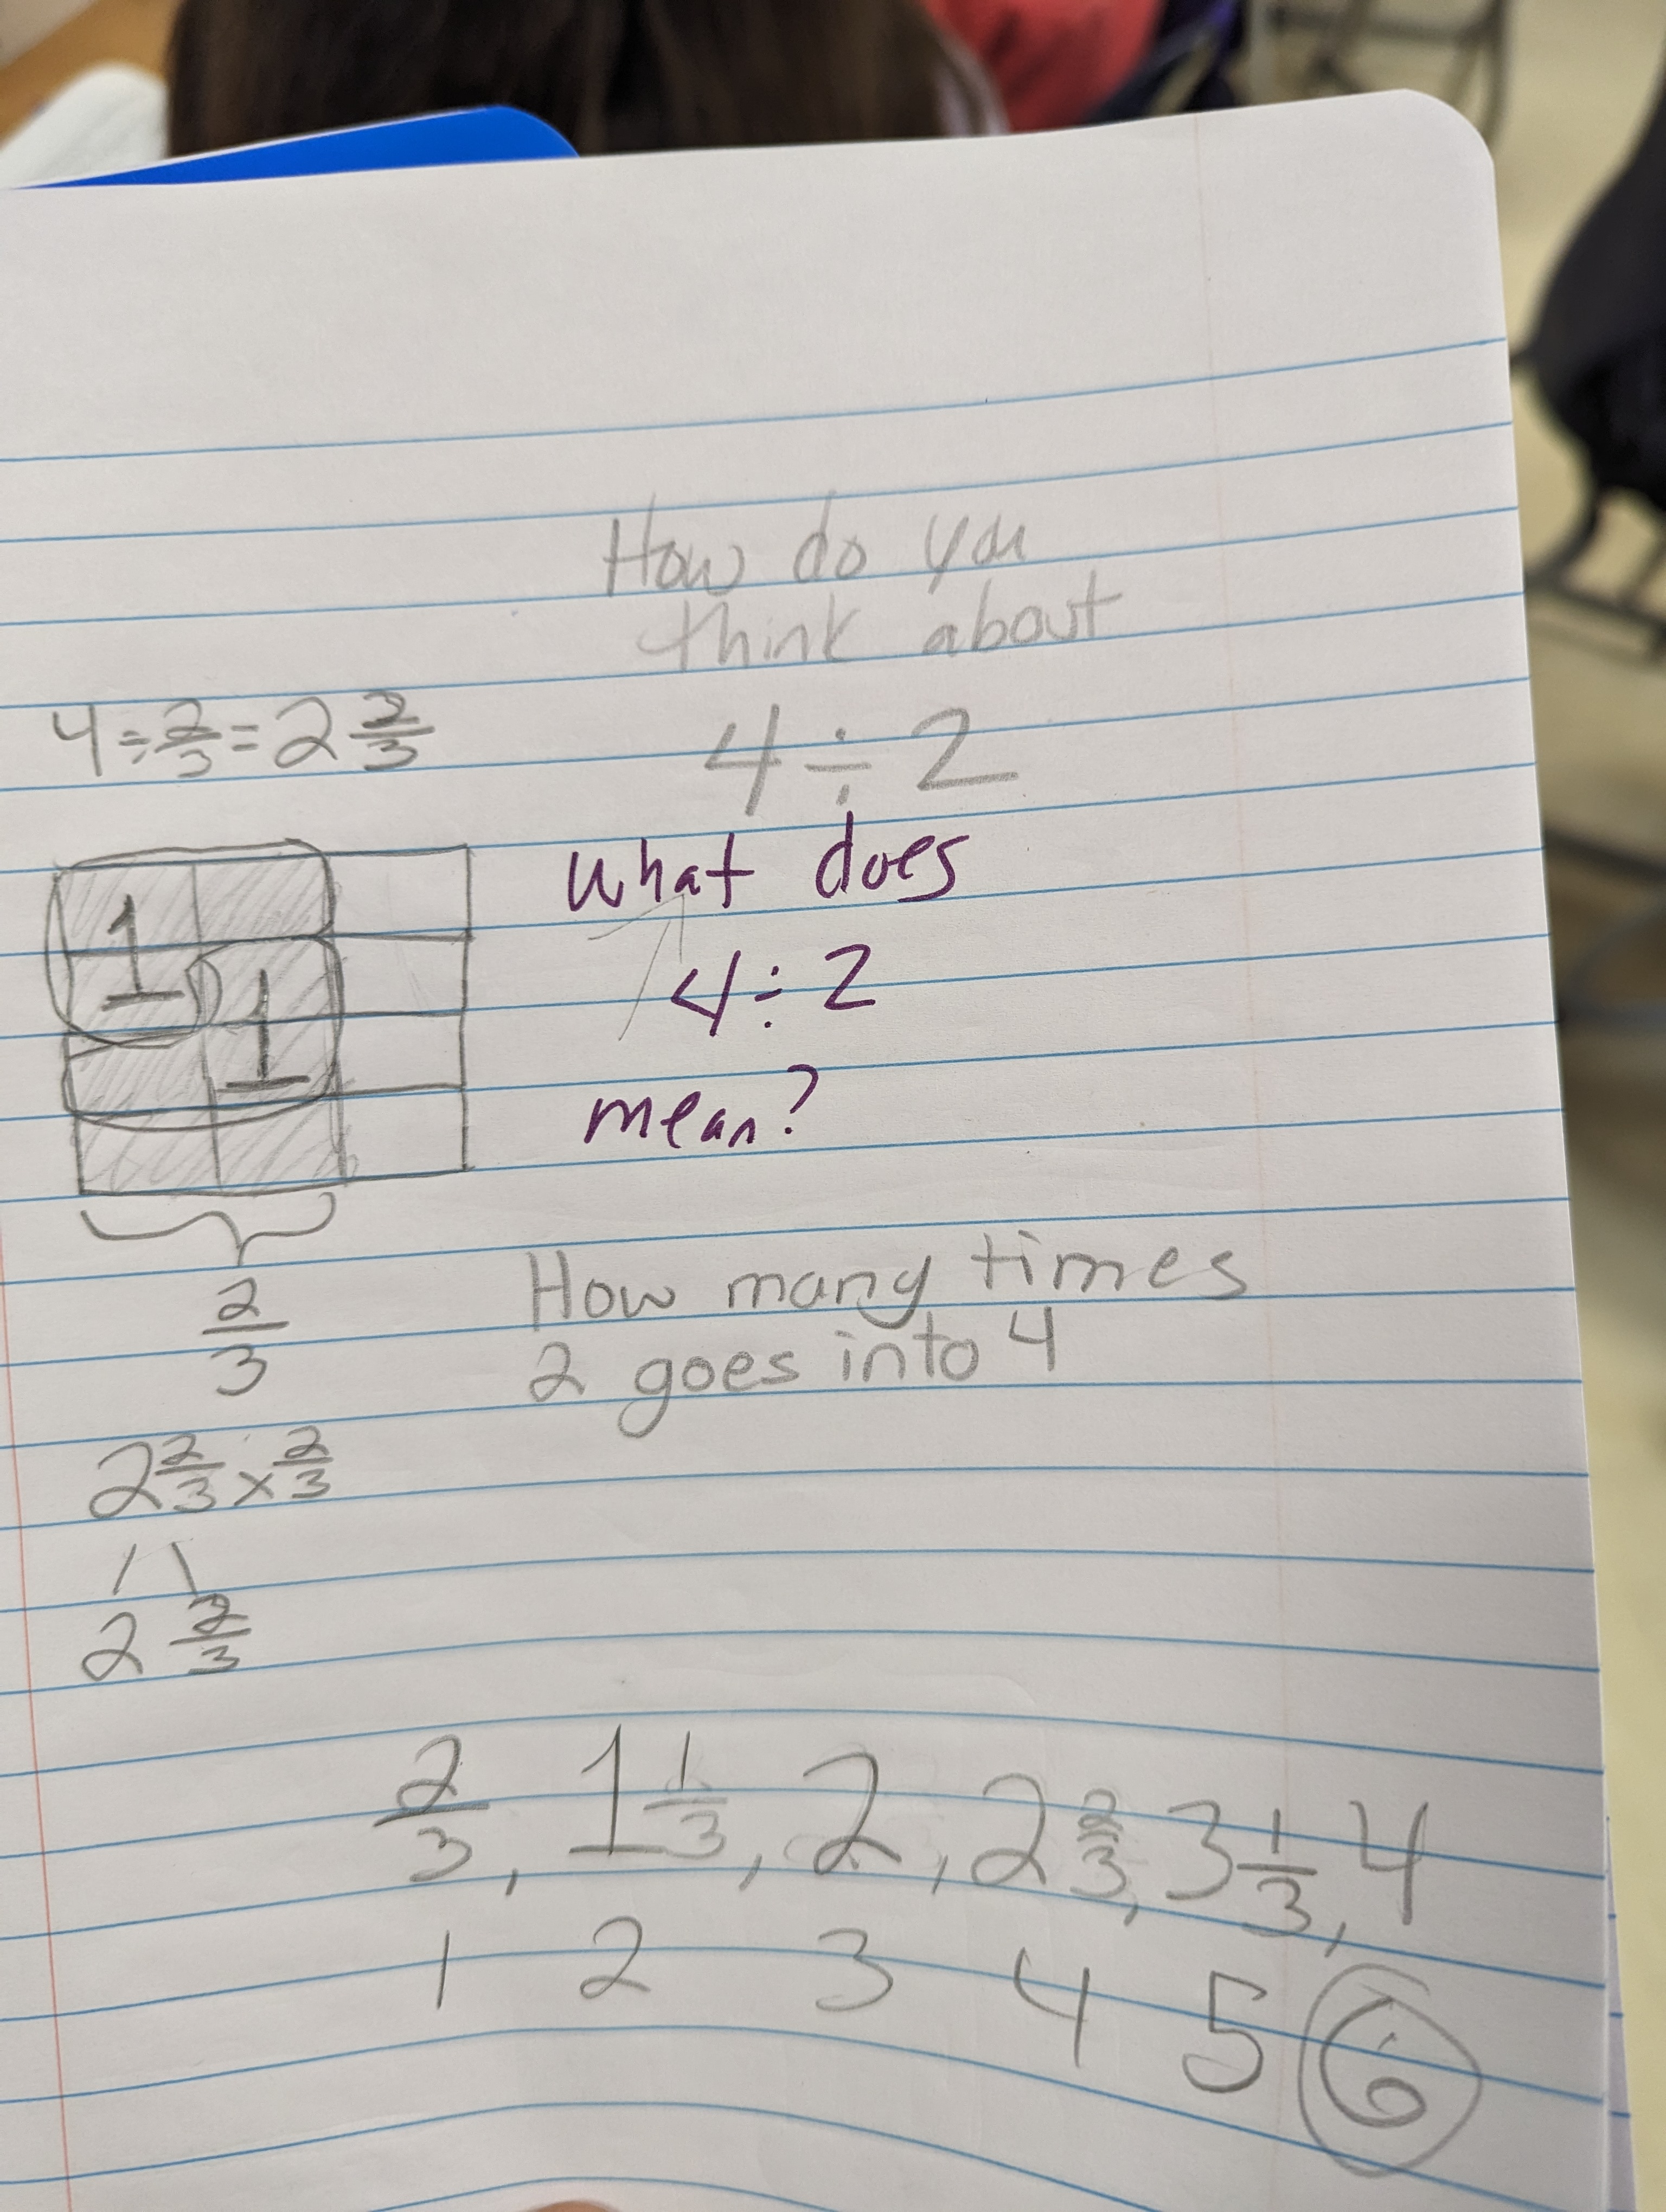 How do you
think about
4 ÷ 2
4 ÷ 2/3 = 2 2/3
1
1
2/3
2 2/3 × 2/3
2 2/3
What does
4 ÷ 2
mean?
How many times
2 goes into 4
2/3, 1 1/3, 2, 2 2/3, 3 1/3, 4
1 2 3 4 5 6